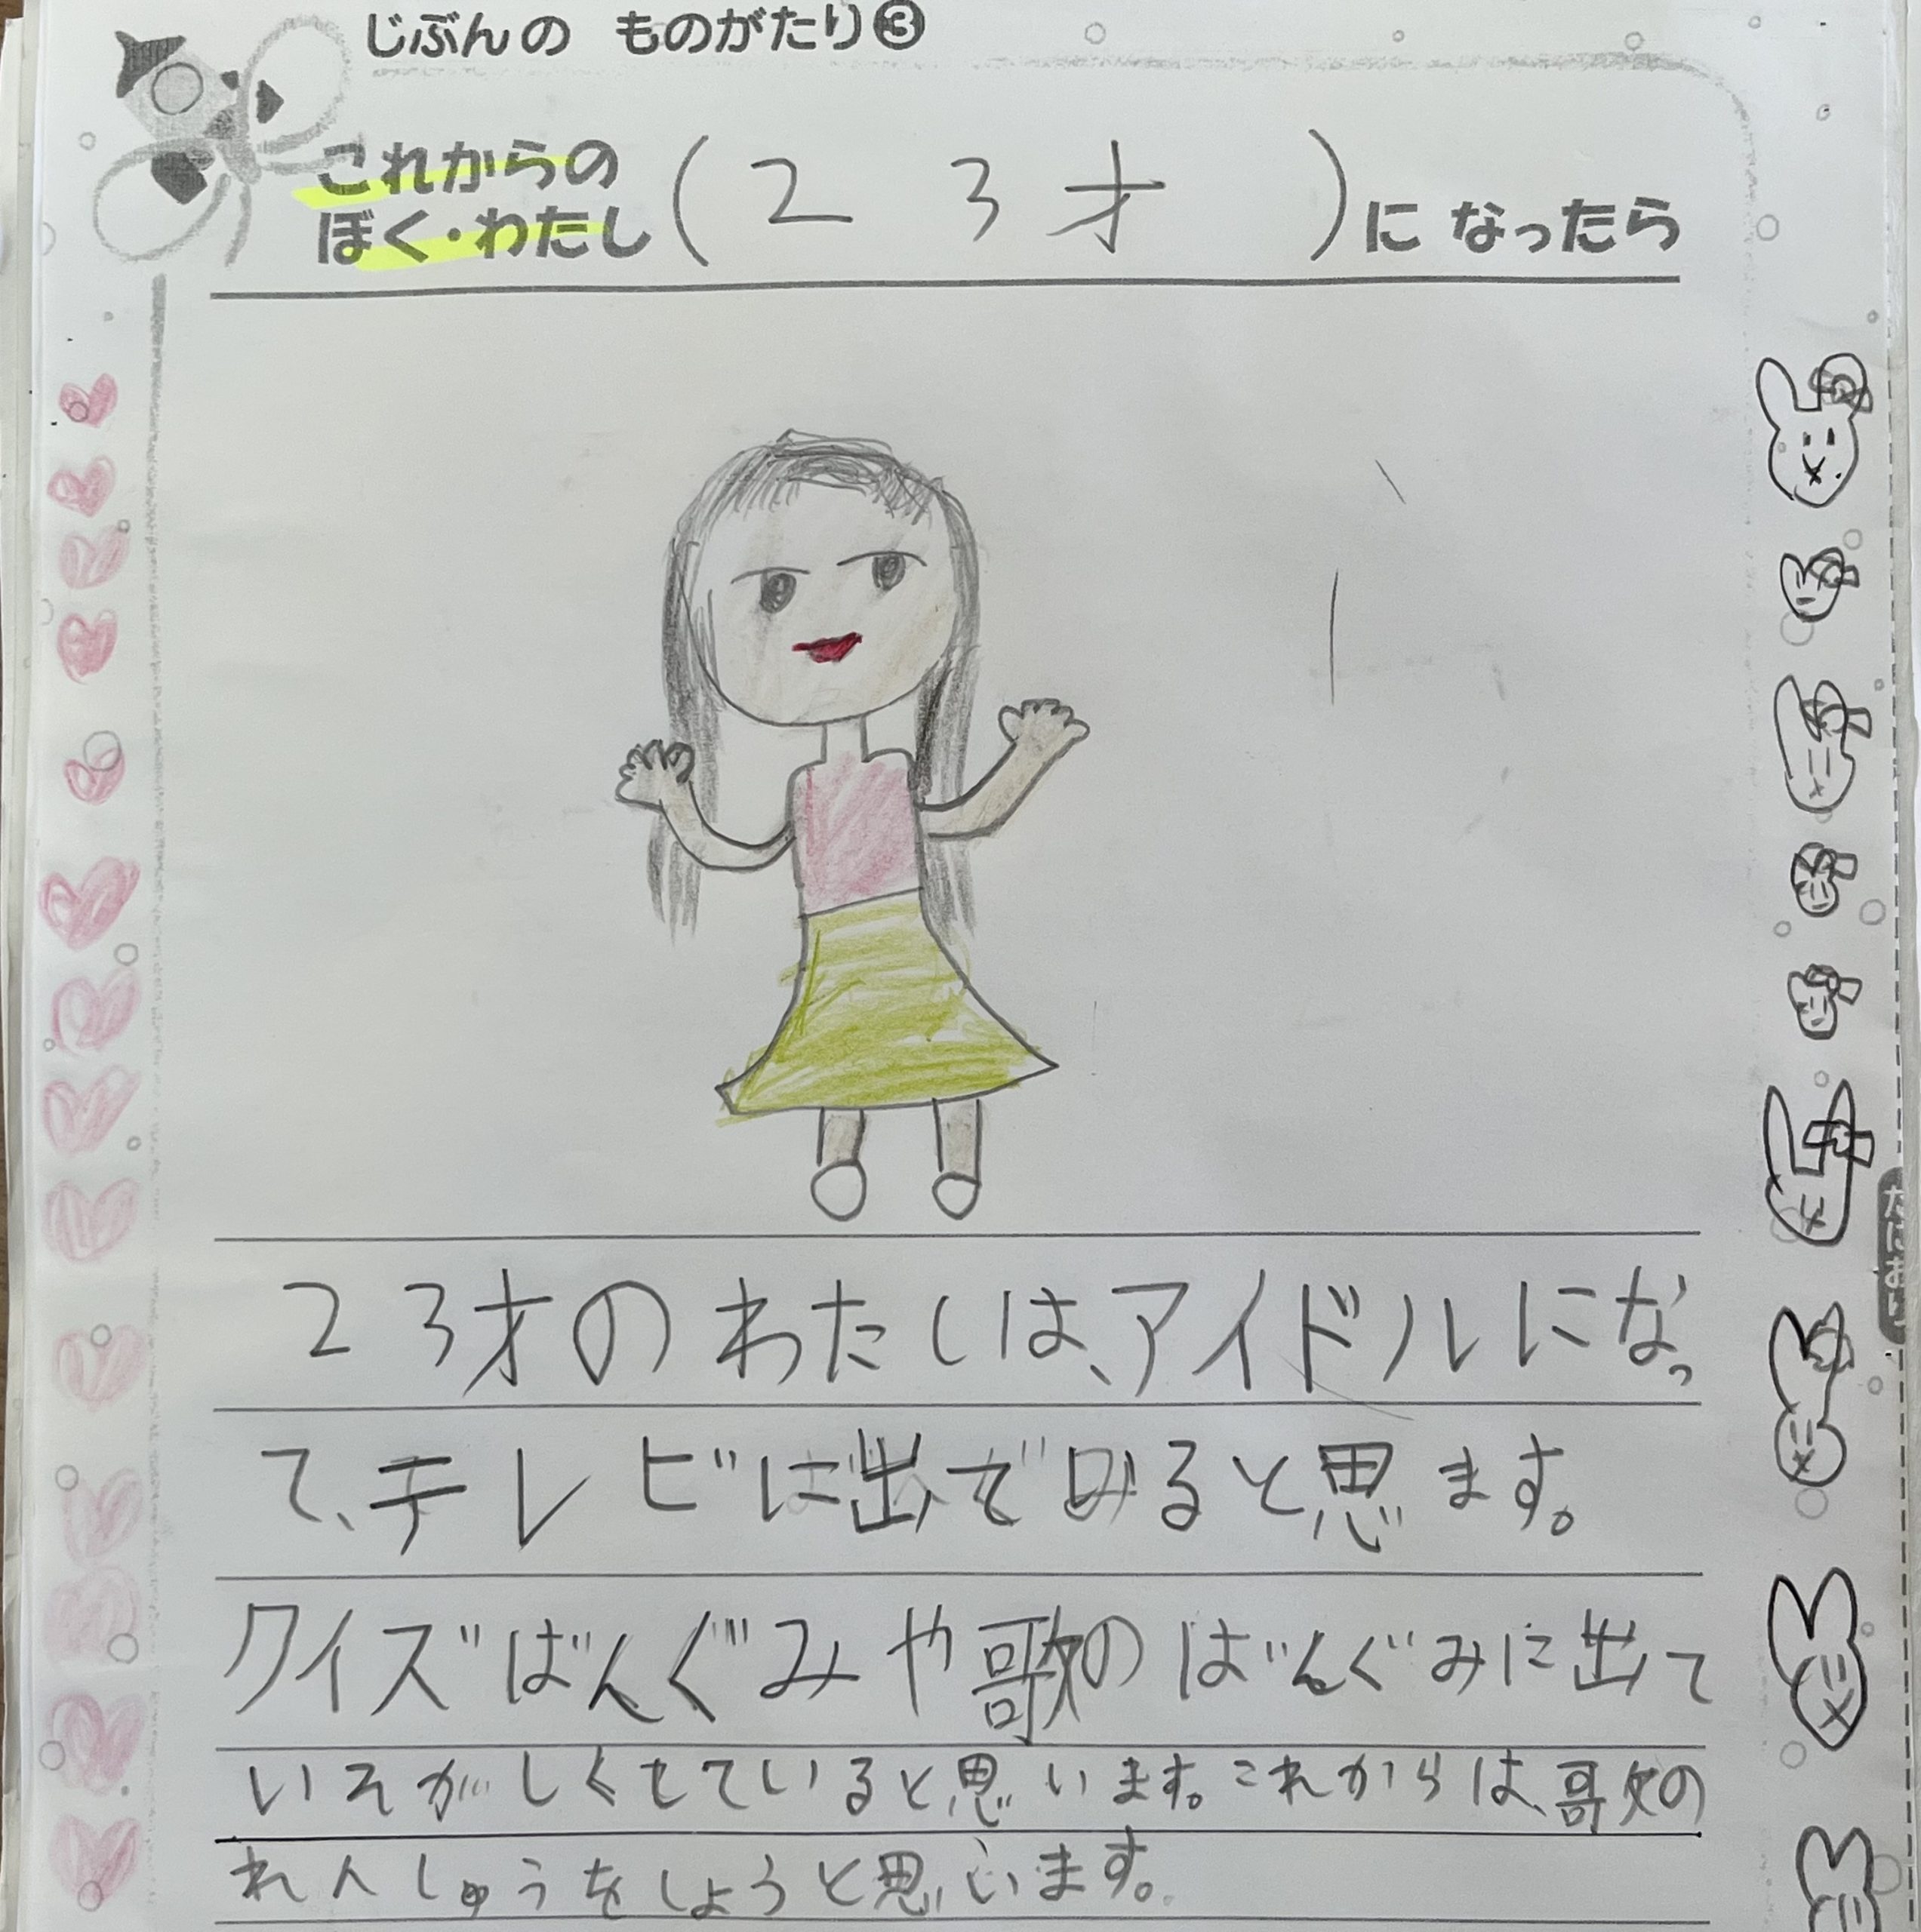 じぶんの ものがたり❸
これからの
ぼく・わたし(23才)に なったら
23才のわたしは、アイドルになっ
て、テレビに出てると思ます。
クイズばんぐみや歌のばんぐみに出て
いそがしくしていると思います。これからは、歌の
れんしゅうをしようと思います。